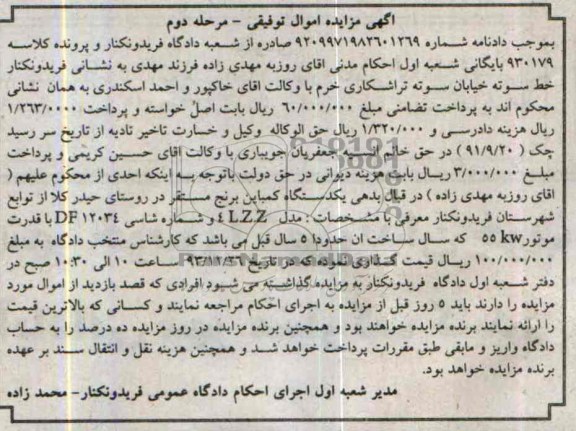 آگهی مزایده اموال توقیفی - مرحله دوم
بموجب دادنامه شماره ۹۲۰۹۹۷۱۹۸۲۶۰۱۲۶۹ صادره از شعبه دادگاه فریدونکنار و پرونده کلاسه
۹۳۰۱۷۹ بایگانی شعبه اول احکام مدنی اقای روزبه مهدی زاده فرزند مهدی به نشانی فریدونکنار
خط سوته خیابان سوته تراشکاری خرم با وکالت اقای خاکپور و احمد اسکندری به همان نشانی
محکوم اند به پرداخت تضامنی مبلغ ۶۰/۰۰۰/۰۰۰ ریال بابت اصل خواسته و پرداخت ۱/۲۶۳/۰۰۰۰
ریال هزینه دادرسی و ۱/۳۲۰/۰۰۰ ریال حق الوکاله وکیل و خسارت تاخیر تادیه از تاریخ سر رسید
چک ( ۹۱/۹/۲۰ ) در حق خانم جعفریان جویباری با وکالت اقای حسین کریمی و پرداخت
مبلغ ۳/۰۰۰/۰۰۰ ریال بابت هزینه دیوانی در حق دولت باتوجه به اینکه احدی از محکوم علیهم (
اقای روزبه مهدی زاده ) در قبال بدهی یکدستگاه کمباین برنج مستقر در روستای حیدر کلا از توابع
شهرستان فریدونکنار معرفی با مشخصات : مدل ٤ LZ.Z و شماره شاسی DF ۱۲۰۳٤ با قدرت
موتور ۵۵ kw که سال ساخت ان حدودا ۵ سال قبل می باشد که کارشناس منتخب دادگاه به مبلغ
۱۰۰/۰۰۰/۰۰۰ ریال قیمت گذاری نموده که در تاریخ ساعت ۱۰ الی ۱۰:۳۰ صبح در
دفتر شعبه اول دادگاه فریدونکنار به مزایده گذاشته می شود افرادی که قصد بازدید از اموال مورد
مزایده را دارند باید ۵ روز قبل از مزایده به اجرای احکام مراجعه نمایند و کسانی که بالاترین قیمت
را ارائه نمایند برنده مزایده خواهند بود و همچنین برنده مزایده در روز مزایده ده درصد را به حساب
دادگاه واریز و مابقی طبق مقررات پرداخت خواهد شد و همچنین هزینه نقل و انتقال سند بر عهده
برنده مزایده خواهد بود.
مدیر شعبه اول اجرای احکام دادگاه عمومی فریدونکنار- محمد زاده